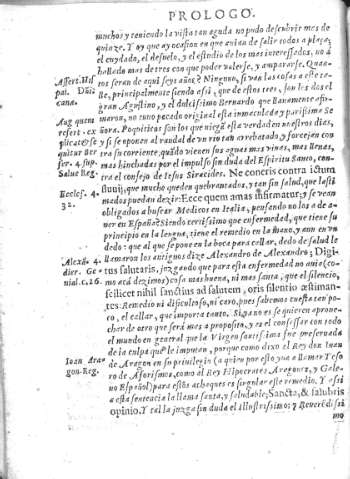 PROLOGO.
muchos y teniendo la vista tan aguda no pudo descubrir mas de
quinze. Y oy que ay ocasion en que auian de salir todos a plaça,
el cuydado, el desuelo, y el estudio de los mas interessados, no à
hallado mas de tres con que poder valerse, y ampararse. Quan-
tos seran de aqui seys años? Ninguno, si van las cosas a este ta-
lle, principalmente siendo assi, que de estos tres, son los dos el
gran Agustino, y el dulcissimo Bernardo que llanamente afir-
maron, no tuuo pecado original esta inmaculada y purissima Se
ñora. Poquiticas son los que niegan esta verdad en nuestros dias,
y si se ponen al raudal de un rio tan arrebatado, y forcejan con
tra su corriente, quando vienen sus aguas mas viuas, mas llenas,
mas hinchadas por el impulso sin duda del Espiritu Santo, con-
tra el consejo de Iesus Sirac des. Ne coneris contra ictum
fluuij, que mucho queden quebramados, y tan sin salud, que lasti
mados puedan dezir: Ecce quem amas infirmatur; y se vean
obligados a buscar Medicos en Italia, pensando no los à de a-
uer en España? Siendo certissimo que enfermedad, que tiene su
principio en la lengua, tiene el remedio en la mano, y aun en vn
dedo: al que se pone en la boca para callar, dedo de salud le
llamaron los antiguos dize Alexandro de Alexandro; Digi-
tus salutaris, juzgando que para esta enfermedad no auia (co-
mo acà dezimos) cosa mas buena, ni mas santa, que el silencio,
scilicet nihil sanctius ad salutem, oris silentio æstiman-
tes: Remedio ni dificultoso, ni caro, pues sabemos cuesta tan po-
co, el callar, que importa tanto. Si no es se quieren aproue-
char de otro que serà mas a proposito, y es el confessar con todo
el mundo en general que la Virgen santissima fue preseruada
de la culpa que le imputan, porque como dixo el Rey don Iuan
de Aragon en su priuilegio (a quien por esto yua a llamar Teso
ro de Aforismos, como al Rey Hipocrates Aragones, y Gale-
no Español) para estos achaques es singular este remedio. Y assi
a esta sentencia la llama santa, y saludable; Sancta, & salubris
opinio. Y tal la juzga sin duda el Illustrissimo: y Reuerēdissi
mo
Assert. His
pal. Dñi-
cana.
Aug. quem
refert. ex
plicat
quitur Ber
ser. 4. sup.
Salue Reg.
Eccles. 4.
32.
Alexā. 4.
dier. Ge-
nial. c. 26.
Ioan Ara-
gon. Reg.